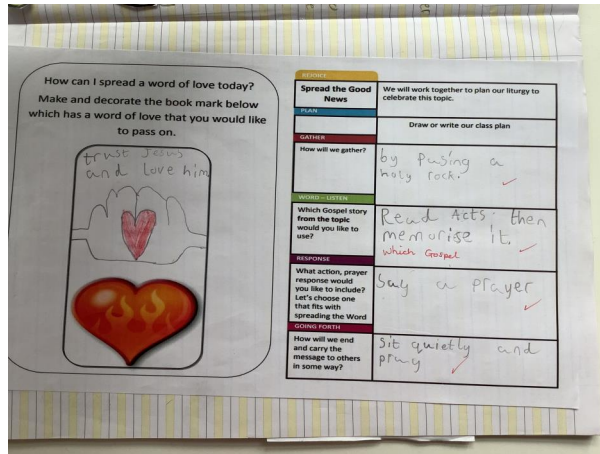 How can I spread a word of love today?
Make and decorate the book mark below
which has a word of love that you would like
to pass on.
trust Jesus
and Love him
REJOICE
Spread the Good
News
We will work together to plan our liturgy to
celebrate this topic.
PLAN
Draw or write our class plan
GATHER
How will we gather?
by pusing a
holy rock.
WORD – LISTEN
Which Gospel story
from the topic
would you like to
use?
Read Acts then
memorise it.
which Gospel
RESPONSE
What action, prayer
response would
you like to include?
Let's choose one
that fits with
spreading the Word
Say a prayer
GOING FORTH
How will we end
and carry the
message to others
in some way?
Sit quietly and
pray